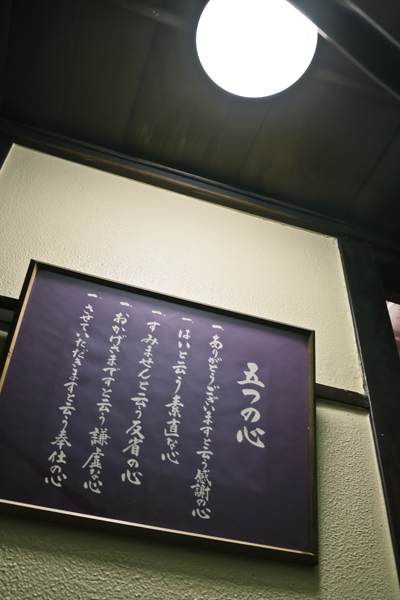 五つの心
一、ありがとうございますと云う感謝の心
一、はいと云う素直な心
一、すみませんと云う反省の心
一、おかげさまですと云う謙虚な心
一、させていただきますと云う奉仕の心